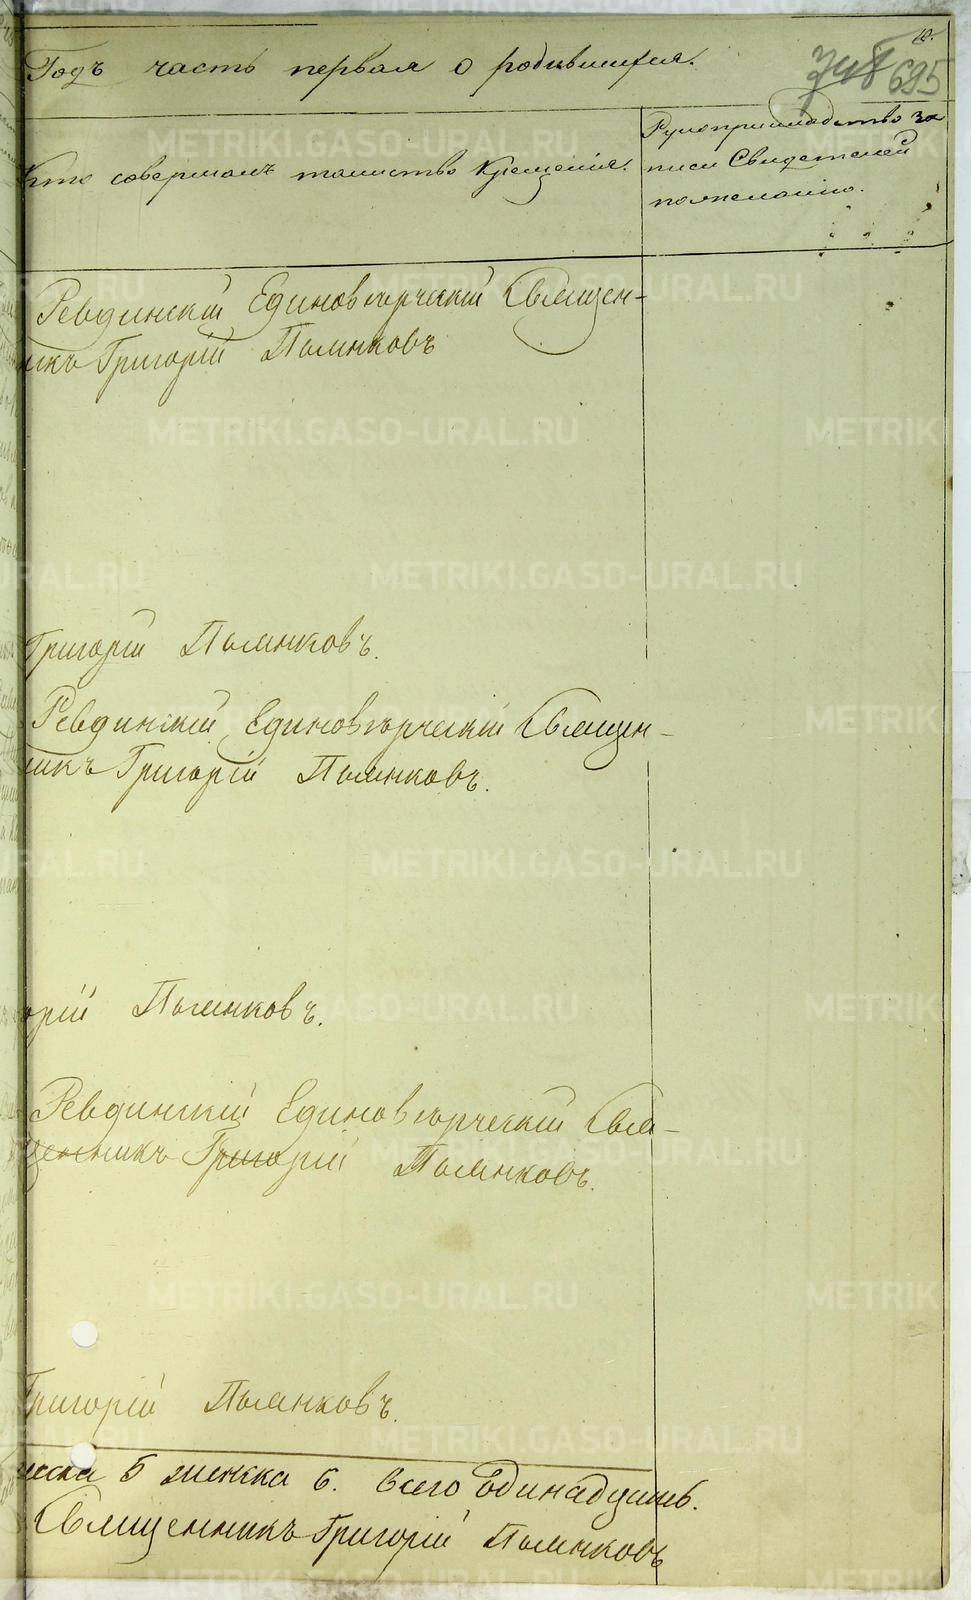 Годъ часть первая о родившихся.
695
Кто совершалъ таинство Крещенія.
Рукоприкладство за
писи Свидетелей
пожеланію.
Ревдинскій Единоверческій Священ-
никъ Григорій Пьянковъ
Григорій Пьянковъ.
Ревдинскій Единоверческій Священ-
никъ Григорій Пьянковъ.
орій Пьянковъ.
Ревдинскій Единоверческій Свя-
щенникъ Григорій Пьянковъ.
Григорій Пьянковъ.
5 женска 6. всего Одинадцать.
Священникъ Григорій Пьянковъ
METRIKI.GASO-URAL.RU